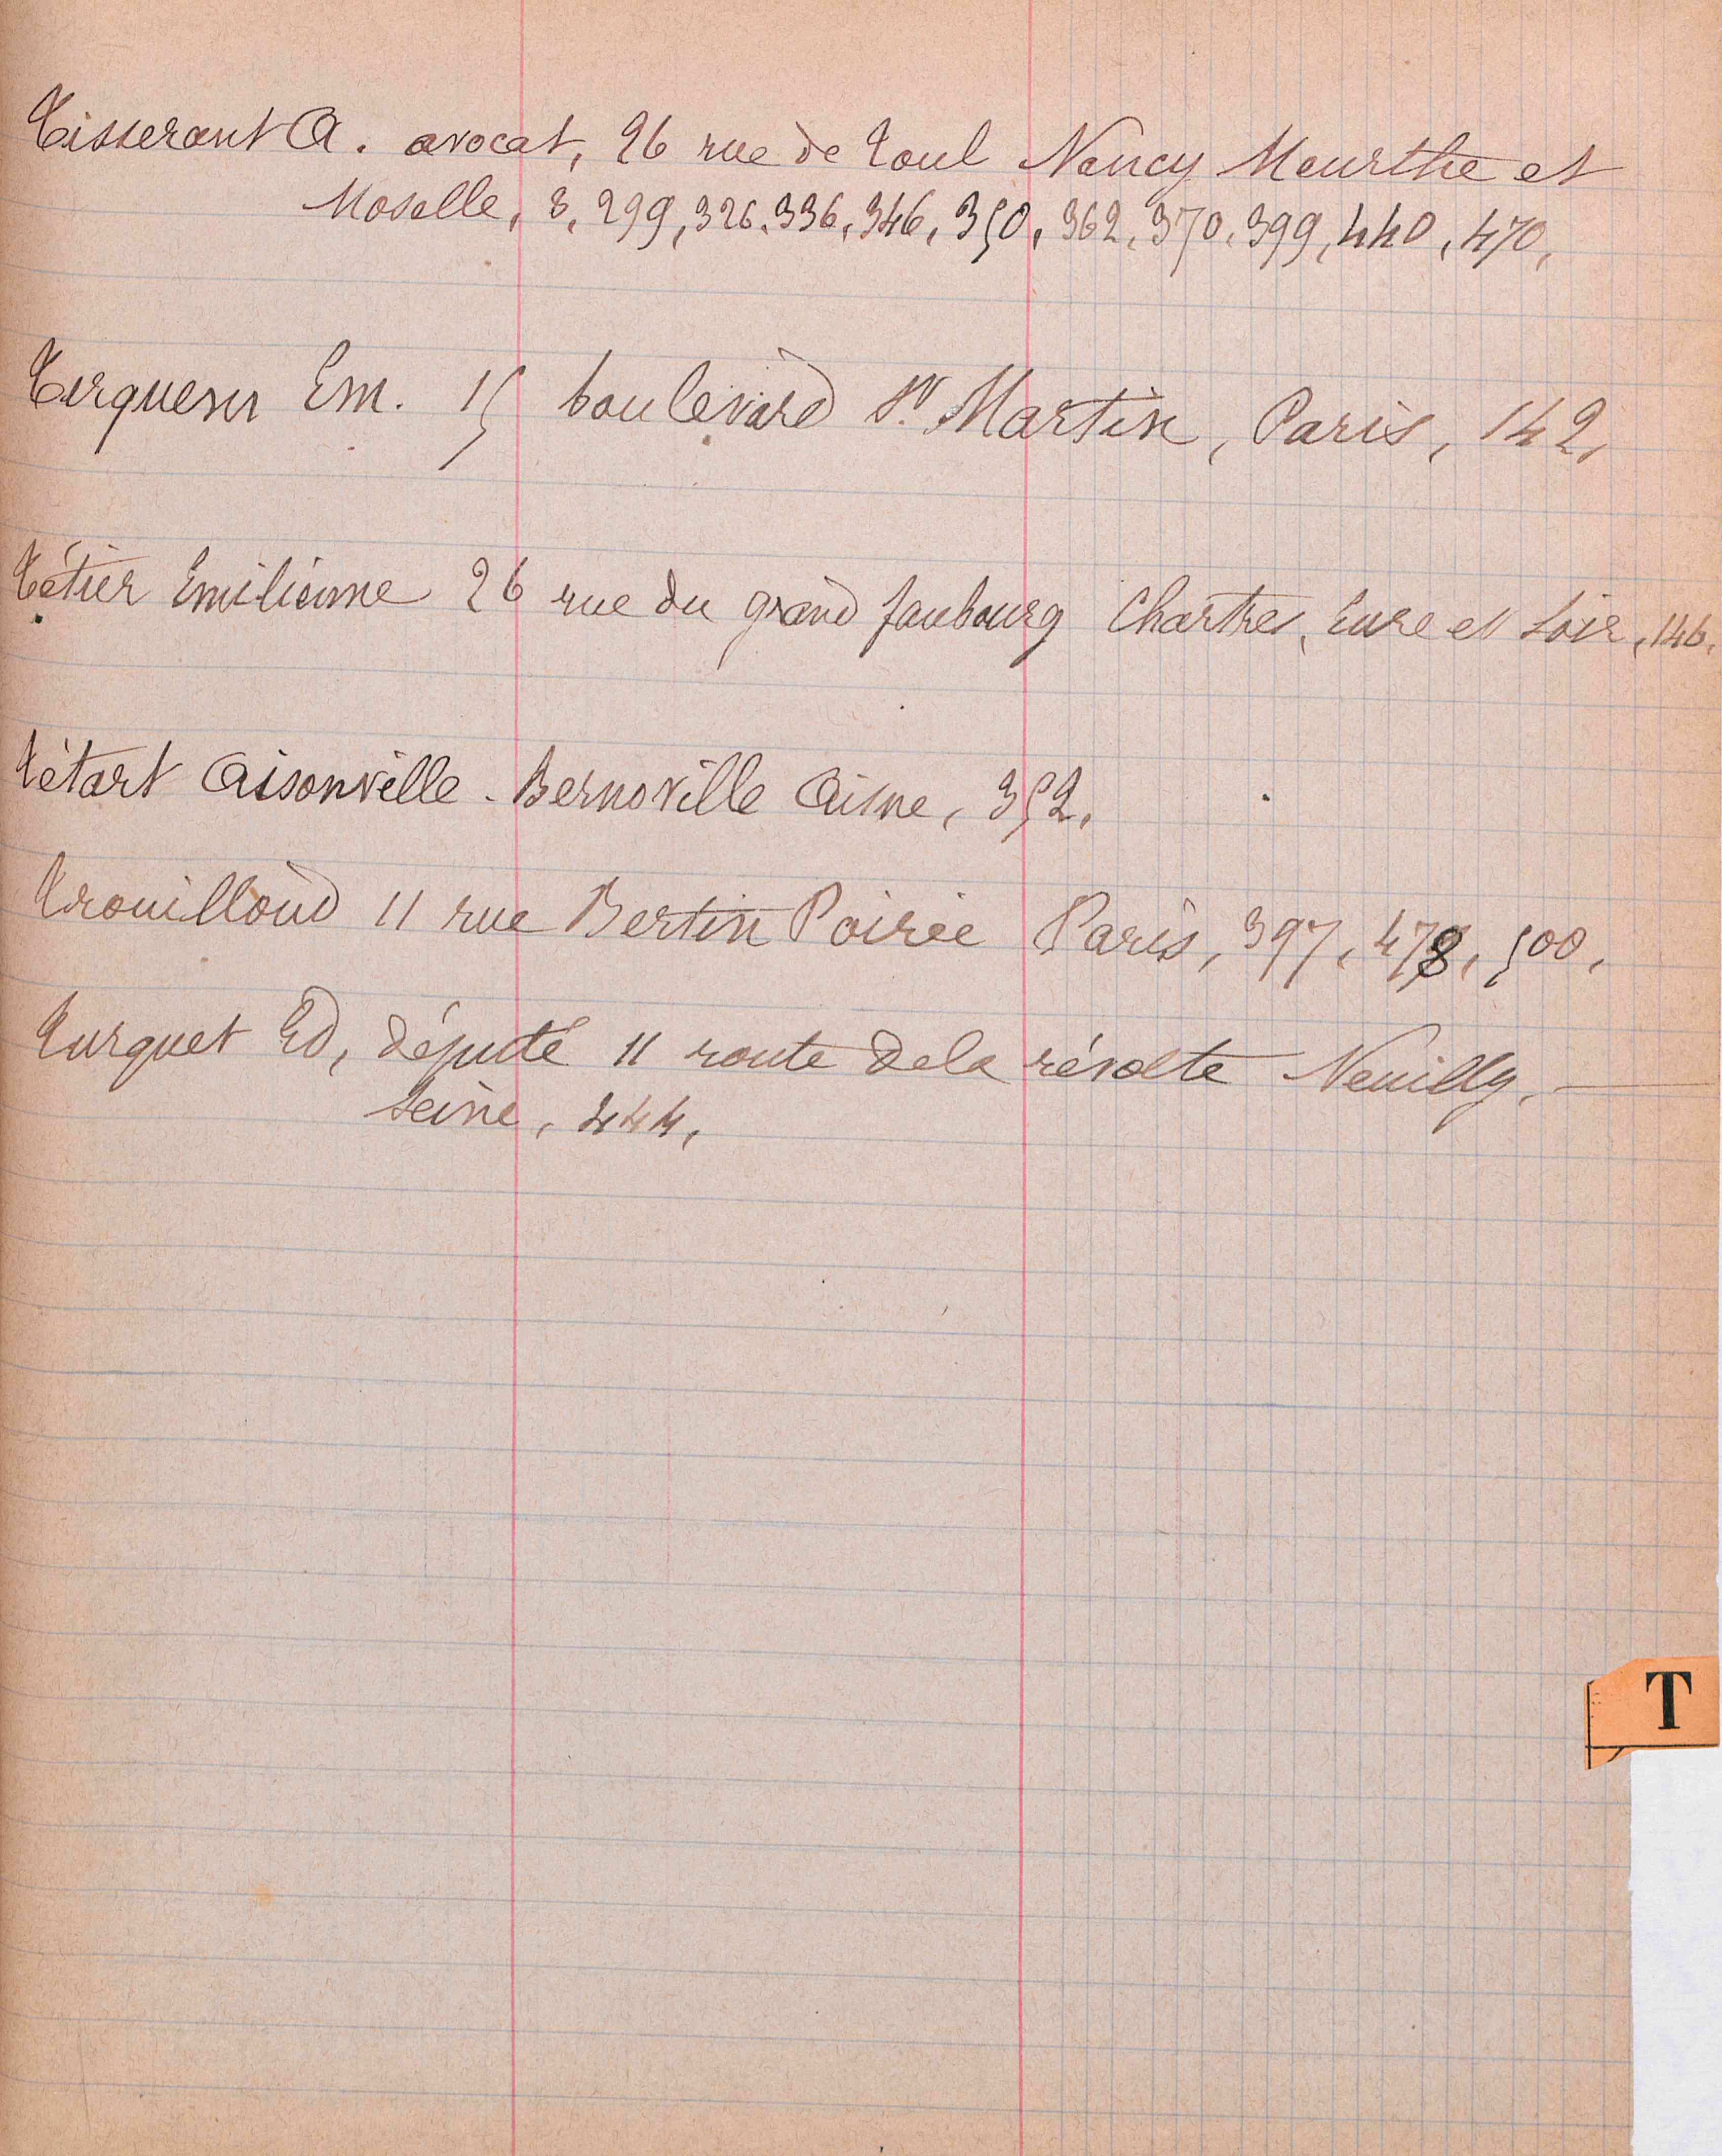 Tisserant A. avocat, 26 rue de Toul Nancy Meurthe et
Moselle, 8, 299, 326. 336, 346, 350, 362, 370, 399, 440, 470,
Terquem Em. 15 boulevard St Martin, Paris, 142,
Tétier Emilienne 26 rue du grand faubourg Chartres, Eure et Loir, 146.
Tétart Aisonville - Bernoville Aisne, 352.
Trouilloud 11 rue Bertin Poirée Paris, 397, 478, 500,
Turquet Ed, député 11 route de la révolte Neuilly,
Seine, 444,
T